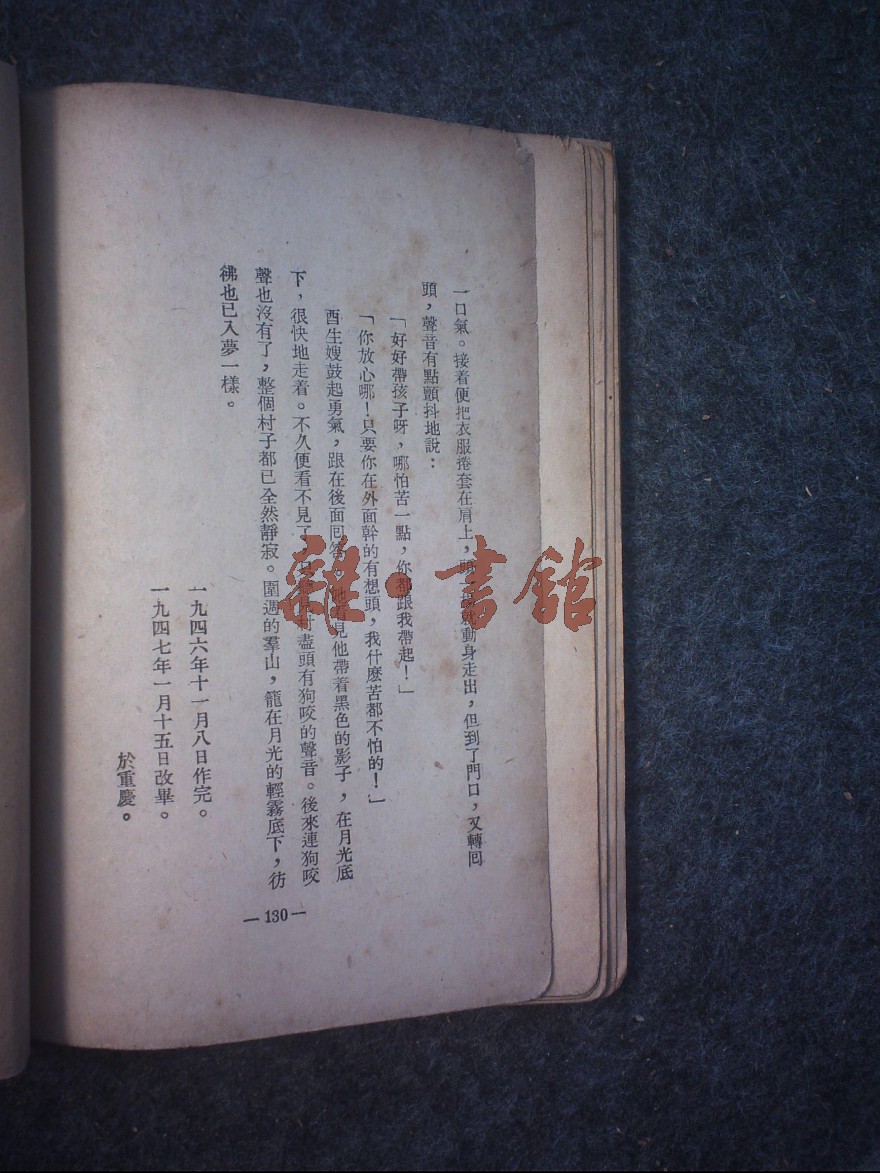 一口氣。接着便把衣服捲套在肩上，就動身走出，但到了門口，又轉回
頭，聲音有點顫抖地說：
「好好帶孩子呀，哪怕苦一點，你都跟我帶起！」
「你放心哪！只要你在外面幹的有想頭，我什麼苦都不怕的！」
酉生嫂鼓起勇氣，跟在後面回答。她看見他帶着黑色的影子，在月光底
下，很快地走着。不久便看不見了，只聽見村盡頭有狗咬的聲音。後來連狗咬
聲也沒有了，整個村子都已全然靜寂。圍週的羣山，籠在月光的輕霧底下，彷
彿也已入夢一樣。
一九四六年十一月八日作完。
一九四七年一月十五日改畢。
於重慶。
—130—
雜·書館